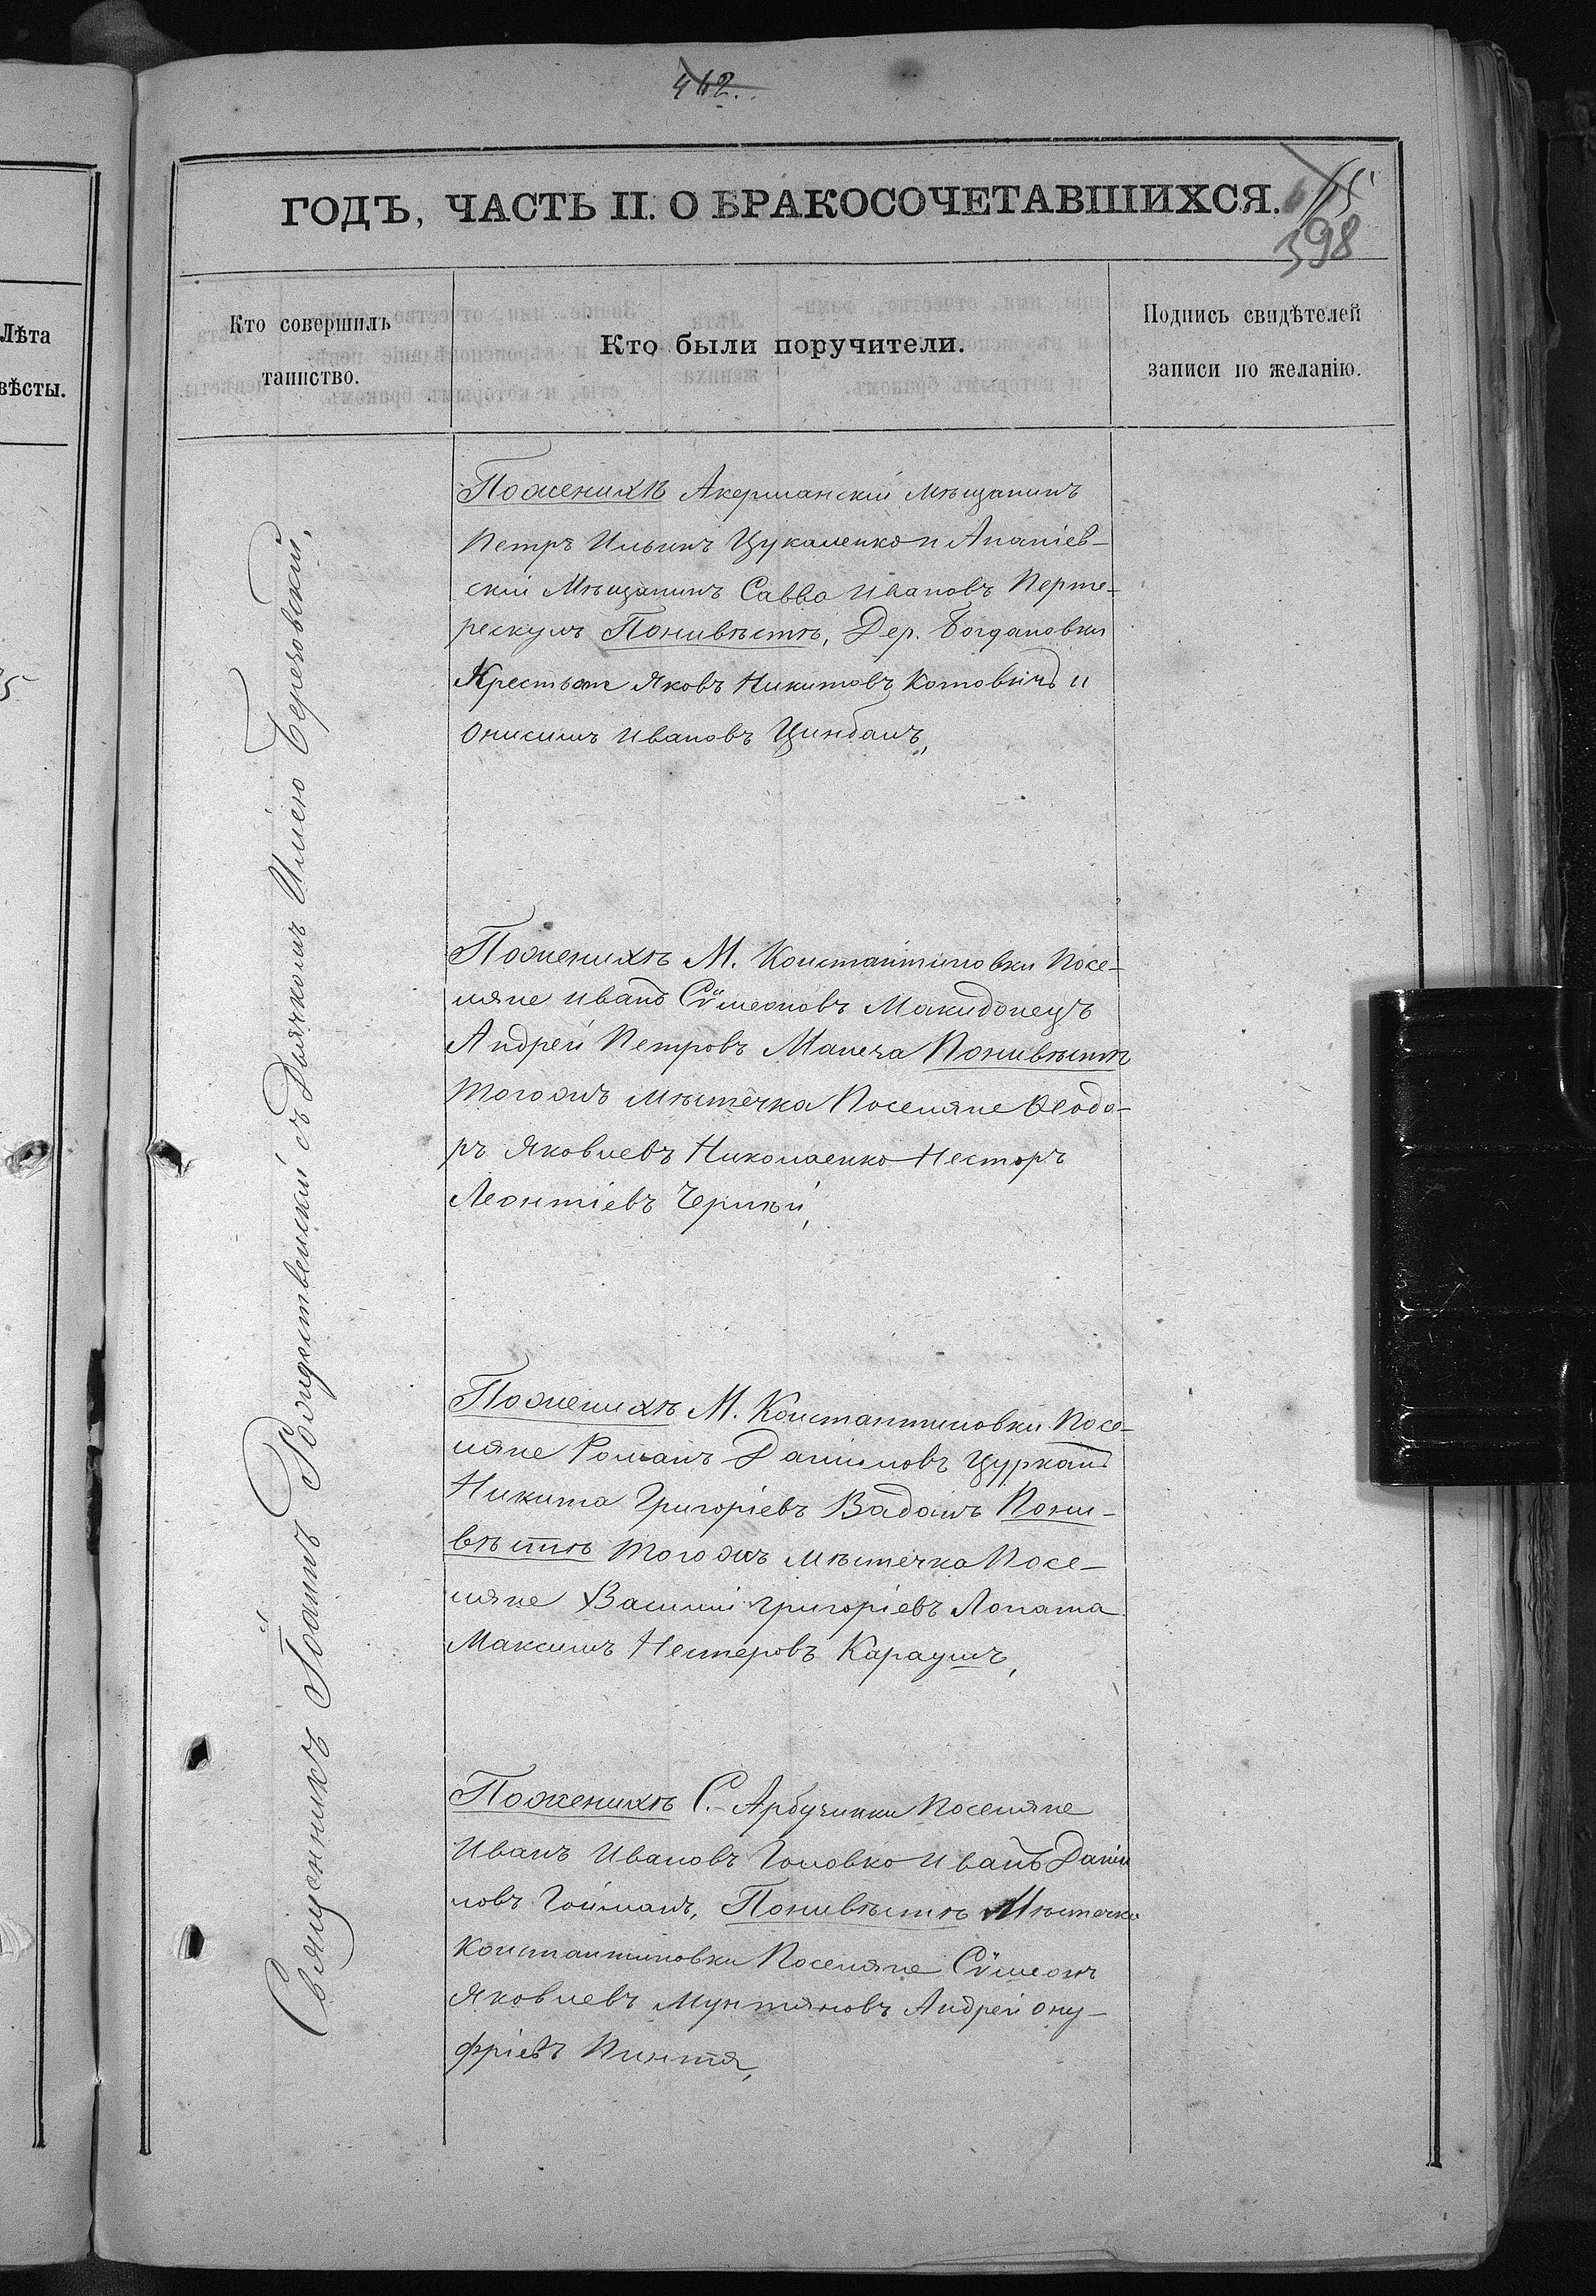 442.
ГОДЪ, ЧАСТЬ II. О БРАКОСОЧЕТАВШИХСЯ.
398
Лѣта
вѣсты.
Кто совершилъ
таинство.
Кто были поручители.
Подпись свидѣтелей
записи по желанію.
Священникъ Іоаннъ Рождественскій съ Дьячкомъ Иліею Березовскій,
Поженихѣ Акерманскій мѣщанинъ
Петръ Ильинъ Цукаленко и Ананіев-
скій Мѣщанинъ Савва Ивановъ Перте-
рескулъ Понивѣстѣ, Дер. Богдановки
Крестьян Яковъ Никитовъ Котовичъ и
Онисимъ Ивановъ Цинбалъ,
Поженихѣ М. Константиновки Посе-
ляне Иванъ Сѵмеоновъ Макидонецъ
Андрей Петровъ Манеча Понивѣстѣ
тогожъ мѣстечка Поселяне Ѳеодо-
ръ Яковлевъ Николаенко Несторъ
Леонтіевъ Черній,
Поженихѣ М. Константиновки Посе-
ляне Романъ Даниловъ Цурканъ
Никита Григоріевъ Ваданъ Пони-
вѣстѣ тогожъ мѣстечка Посе-
ляне Василій Григоріевъ Лопата
Максимъ Нестеровъ Караушъ,
Поженихѣ С. Арбузинки Поселяне
Иванъ Ивановъ Головко Иванъ Дани
ловъ Гойманъ, Понивѣстѣ Мѣстечка
Константиновки Поселяне Сѵмеонъ
Яковлевъ Мунтяновъ Андрей Ону-
фріевъ Пинтя,